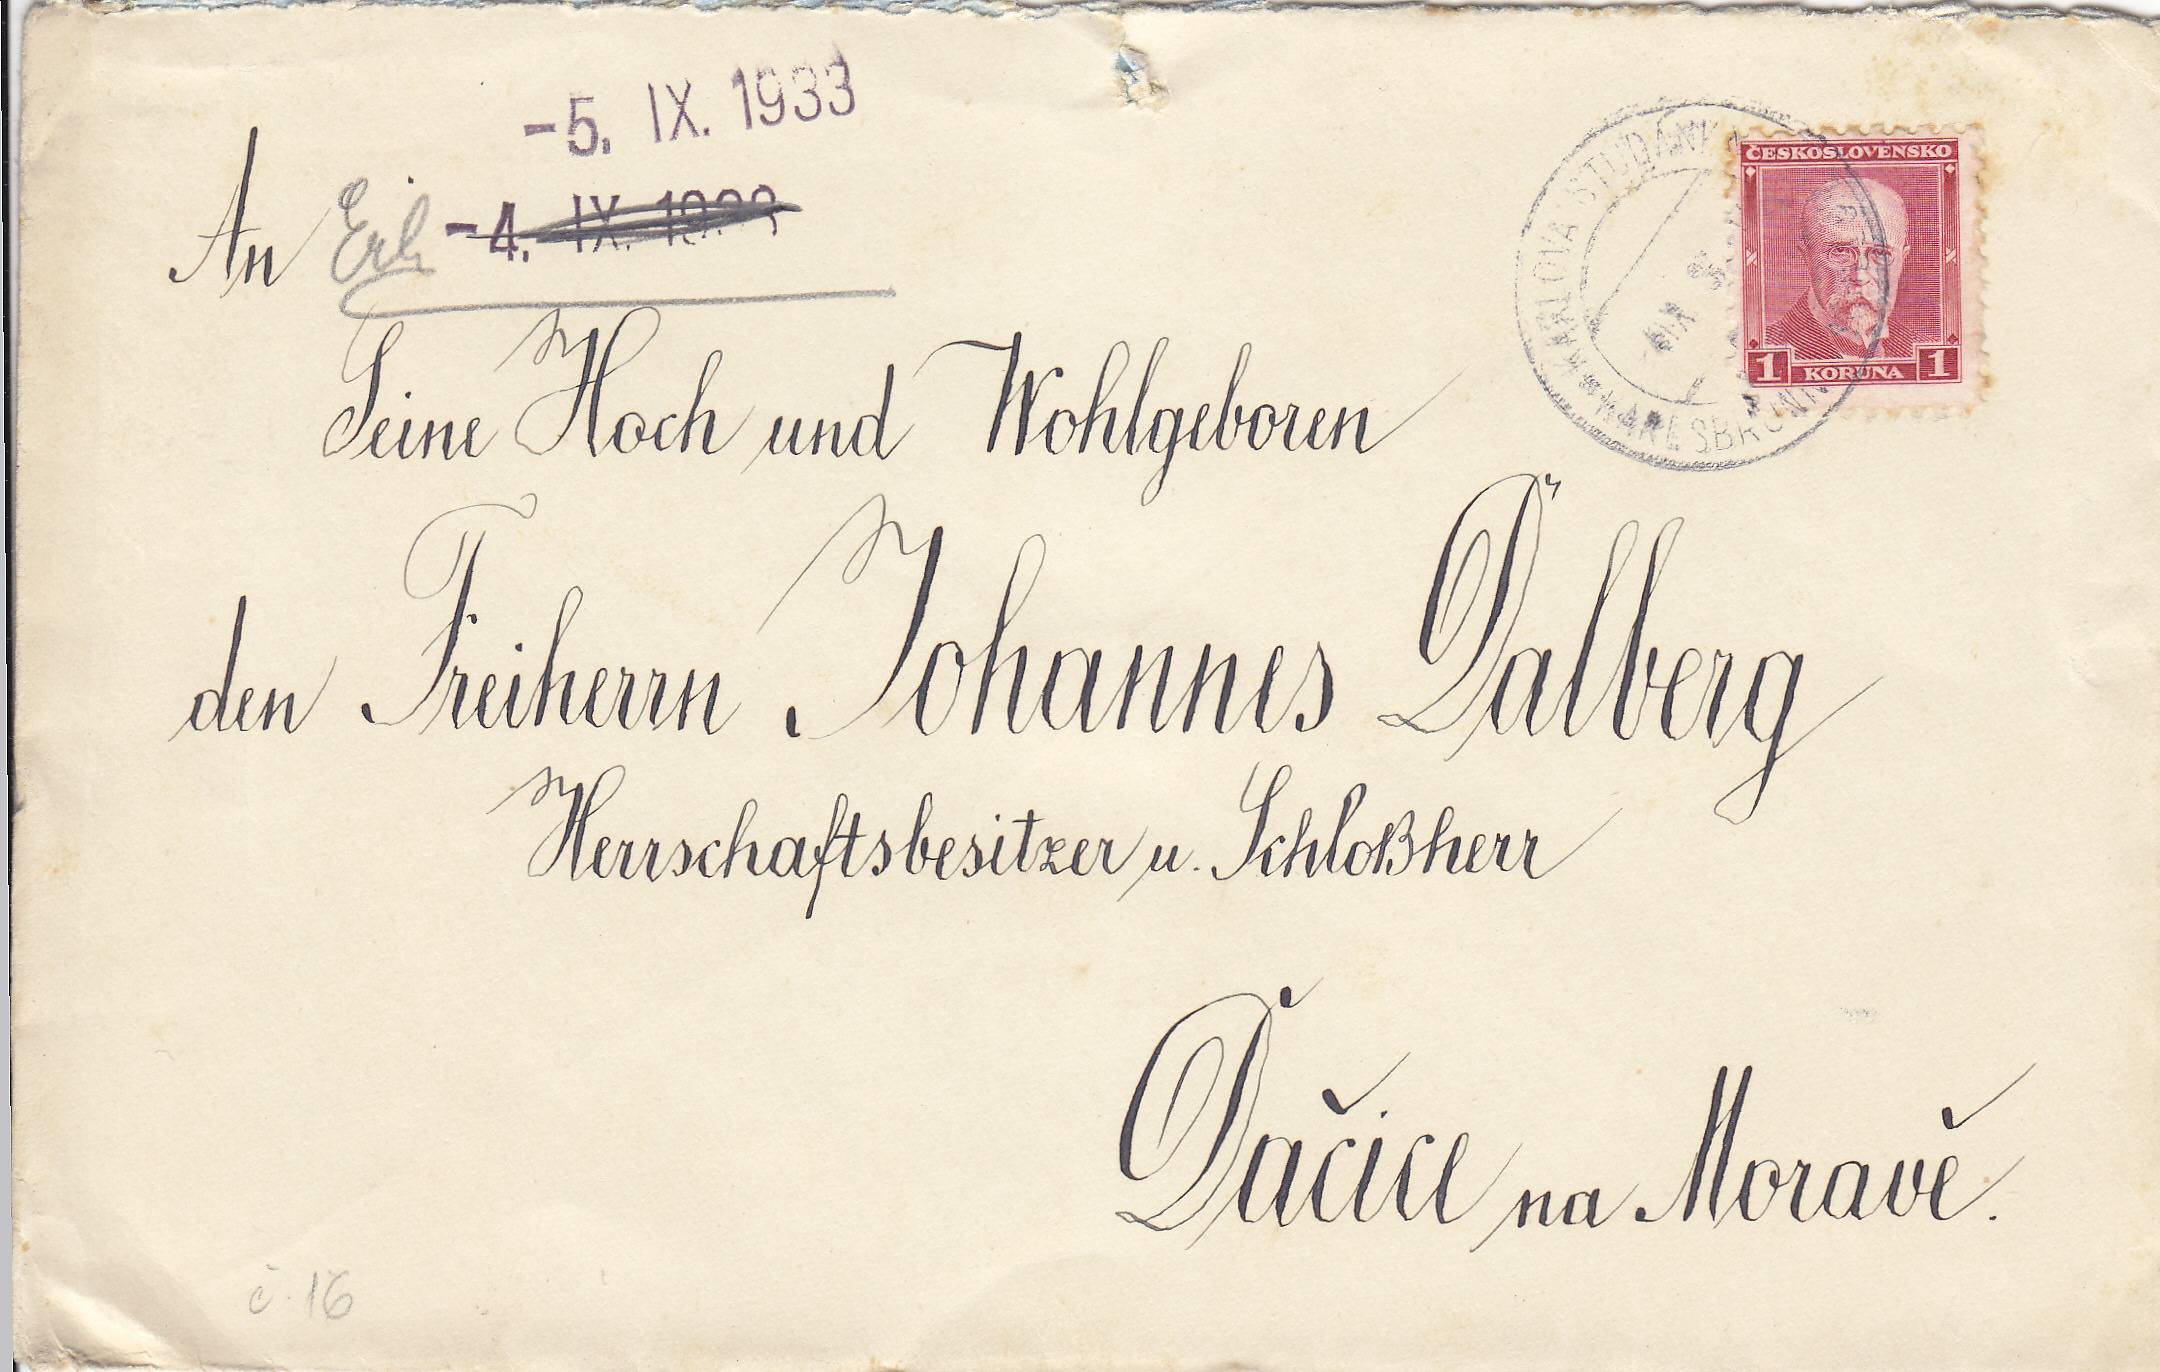 -5. IX. 1933
An Erh. -4. IX. 1933
Seine Hoch und Wohlgeboren
den Freiherrn Johannes Dalberg
Herrschaftsbesitzer u. Schloßherr
Dačice na Moravě.
č. 16
ČESKOSLOVENSKO
1 KORUNA 1
KARLOVA STUDÁNKA
KARLSBRUNN